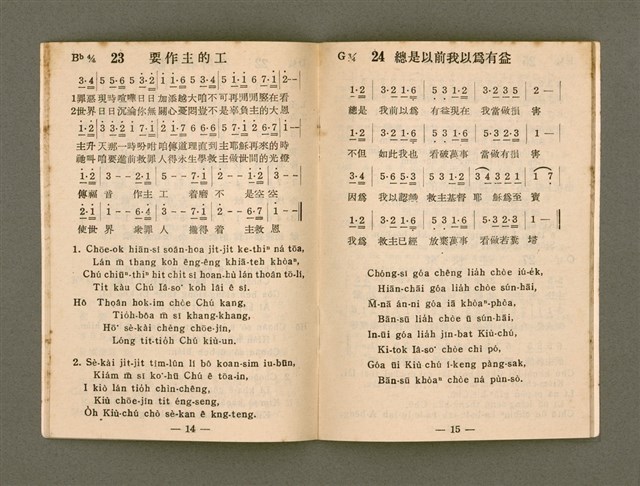 Bb 4/4 23 要作主的工
3·4 | 5 5·6 5 3·2 | 1 1·6 5 3·4 | 5 1·1 6 7·1 | 2 — |
1罪惡現時喧嘩日日加添越大咱不可再閒閒坐在看
2世界日日沉淪你無關心憂悶豈不是辜負主的大恩
1·2 3·3 3 2·1 | 7 7·1
主升天那一時吩咐咱傳道理直到主耶穌再來的時
祂叫咱要進前救罪人得永生學救主做世間的光燈
1·2 | 3 — — 2·1 | 5 — — 7·1 | 2 — — 1·2 | 3 — —
傳福音 作主工 着磨 不是空空
2·1 | 1 — — 6·4 | 3 — — 7·1 | 2 — — 6·7 | 1 — —
使世界 衆罪人 攏得着 主救恩
1. Chōe-ok hiān-sî soân-hoa ji̍t-ji̍t ke-thiⁿ ná tōa,
Lán m̄ thang koh êng-êng khiā-teh khòaⁿ,
Chú chiūⁿ-thiⁿ hit chi̍t sî hoan-hù lán thoân tō-lí,
Ti̍t kàu Chú Iâ-so͘ koh lâi ê sî.
Hô Thoân hok-im chòe Chú kang,
Tio̍h-bôa m̄ sī khang-khang,
Hō͘ sè-kài chèng chōe-jîn,
Lóng tit-tio̍h Chú Kiù-un.
2. Sè-kài ji̍t-ji̍t tîm-lûn lí bô koan-sim iu-būn,
Kiám m̄ sī ko͘-hū Chú ê tōa-in,
I kiò lán tio̍h chìn-chêng,
Kiù chōe-jîn tit éng-seng,
O̍h Kiù-chú chò sè-kan ê kng-teng.
— 14 —
G 3/4 24 總是以前我以爲有益
1·2 | 3·2 1·6 | 5 3 1·2 | 3·2 1·6 | 5·3 2
總是 我前以爲 有益現在 我當做損 害
1·2 | 3·2 1·6 | 5 3 1·2 | 5·3 3·2 | 1 —
不但 如此我也 看破萬事 當做有損 害
3·4 | 5·6 5·3 | 1 5 3·2 | 3 4 3 2 1 | 1 7
因爲 我以認識 救主基督 耶穌爲至 寶
1·2 | 3·2 1·6 | 5 3 1·6 | 5·3 3·2 | 1 —
我爲 救主已經 放棄萬事 看做若糞 埽
Chóng-sī góa chêng lia̍h chòe iú-ék,
Hiān-chāi góa lia̍h chòe sún-hāi,
M̄-nā án-ni góa iā khòaⁿ-phòa,
Bān-sū lia̍h chòe ū sún-hāi.
In-ūi góa lia̍h jīn-bat Kiù-chú,
Ki-tok Iâ-so͘ chòe chì pó,
Góa ūi Kiù chú í-keng pàng-sak,
Bān-sū khòaⁿ chòe ná pùn-sò.
— 15 —